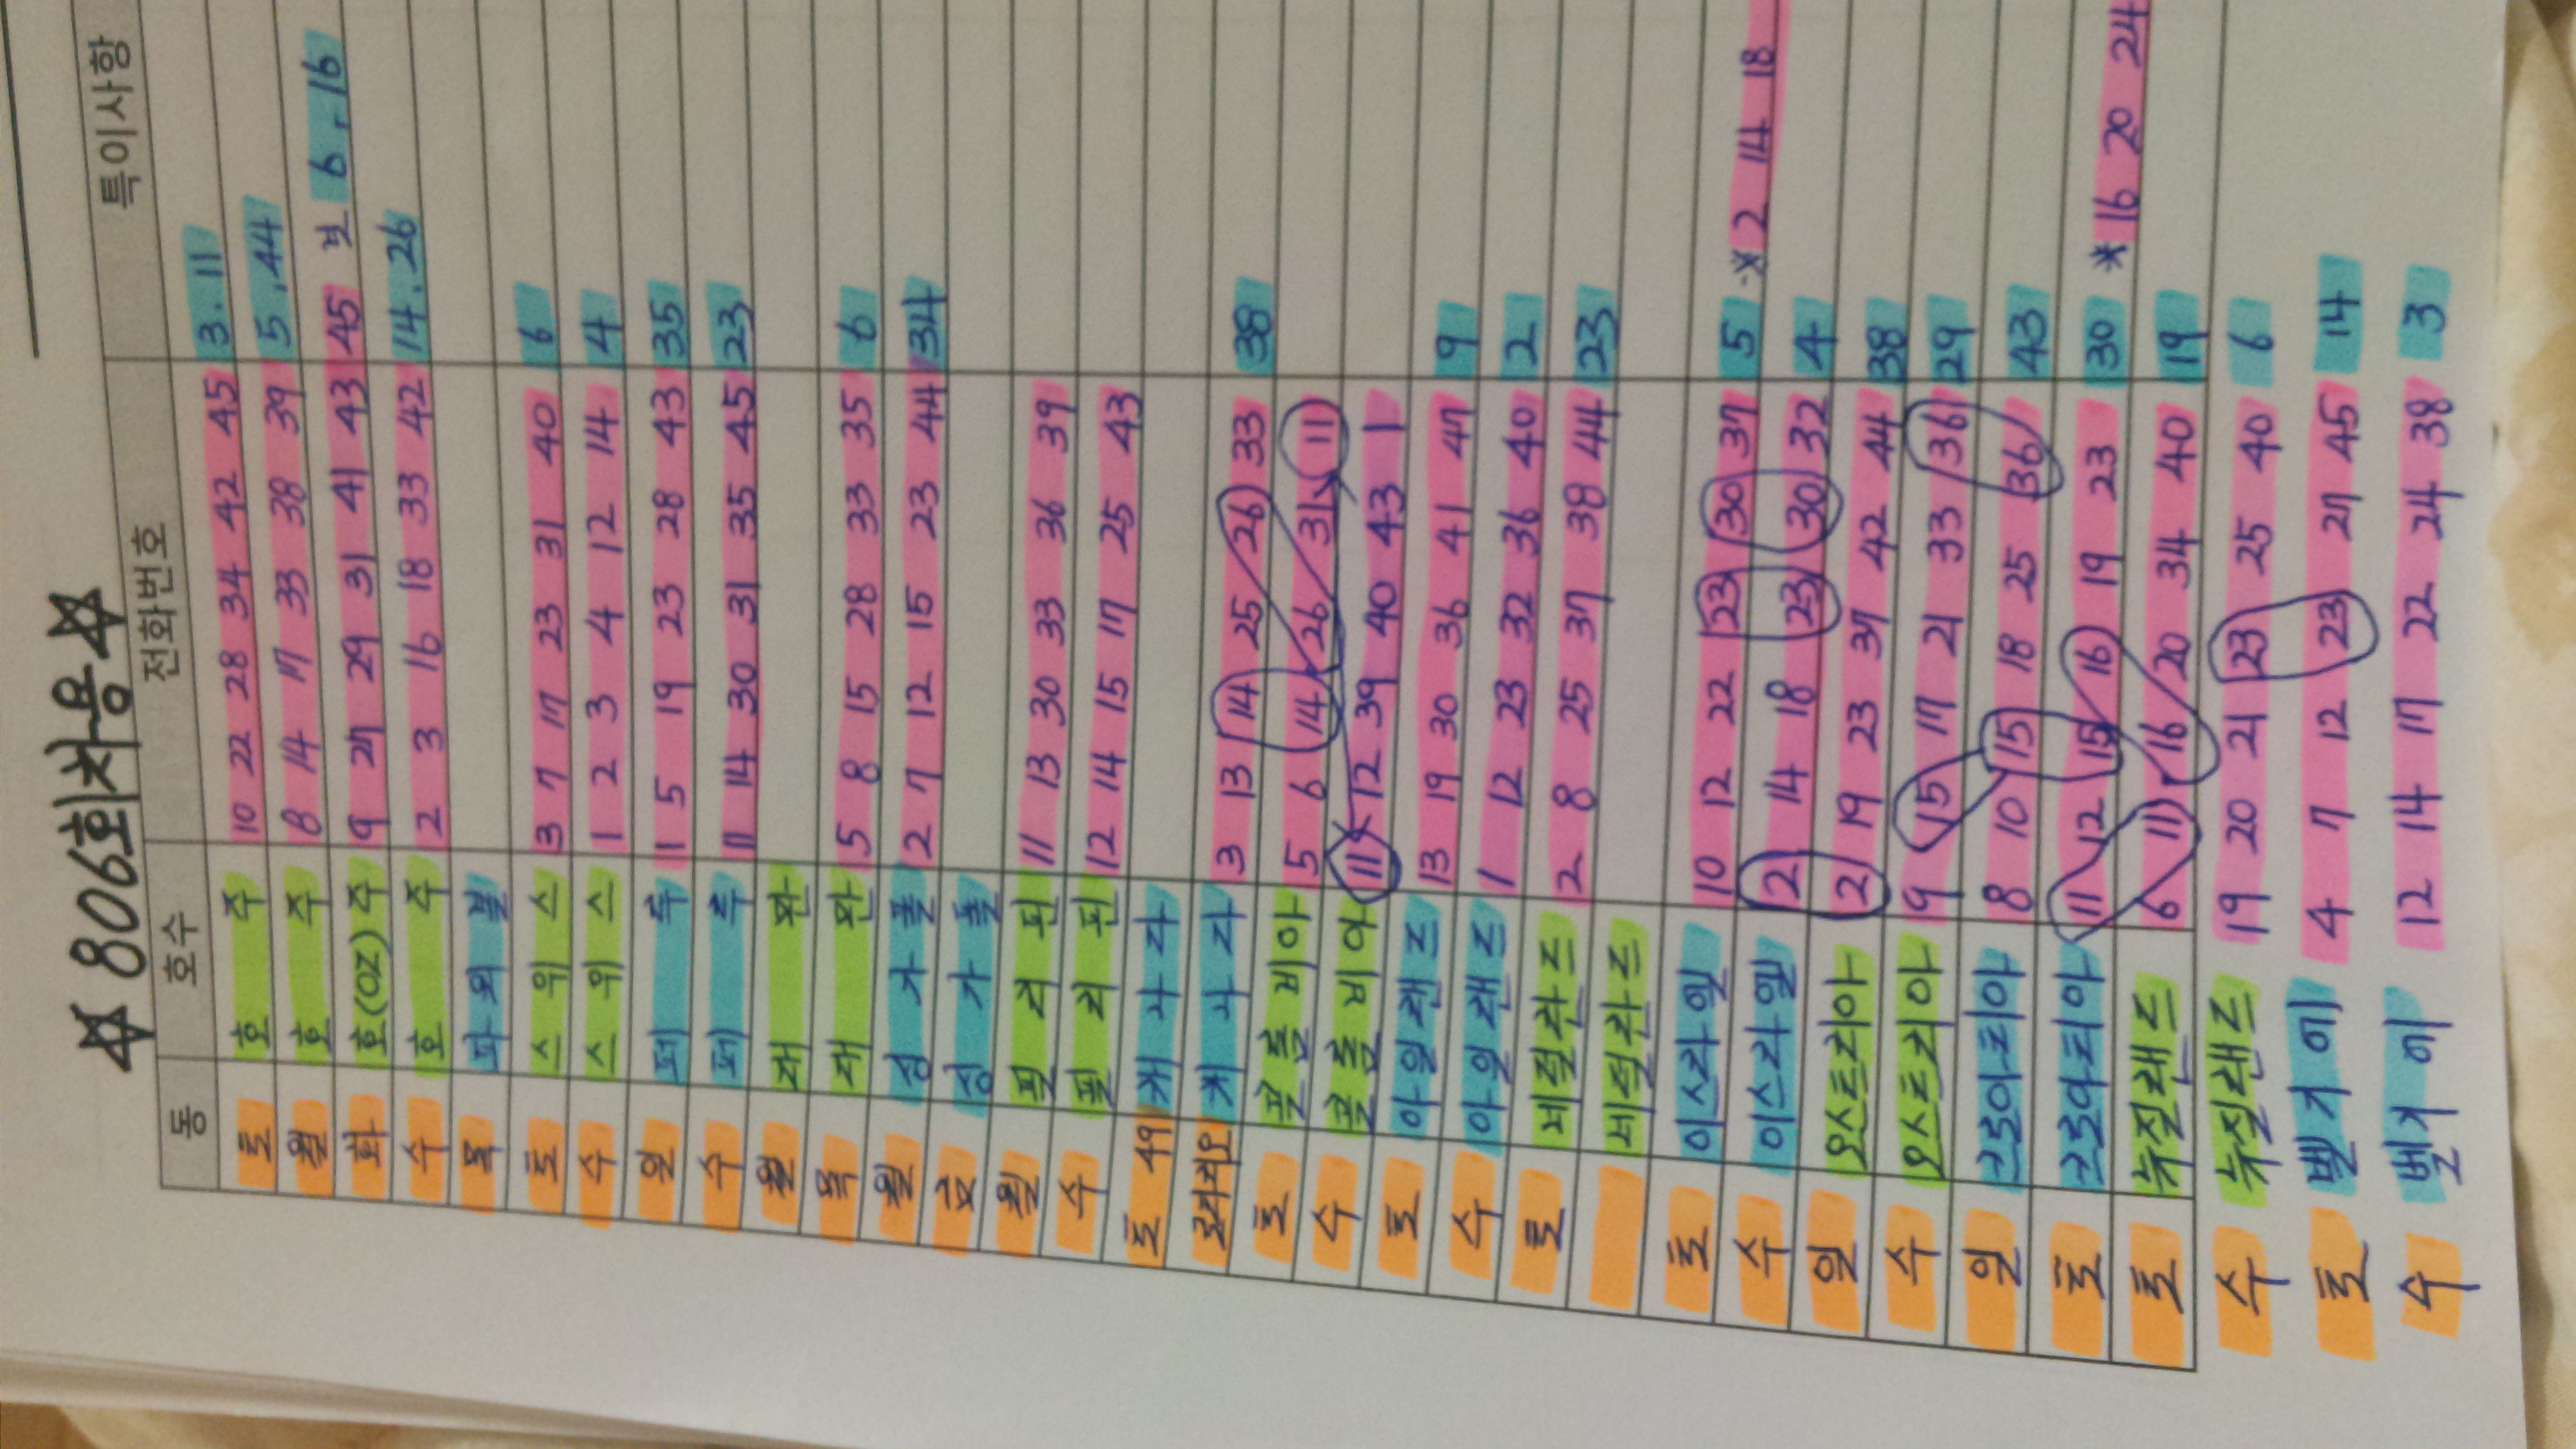 ☆ 806회차용 ☆
동 호수 전화번호 특이사항
토 호 주 10 22 28 34 42 45 3. 11
월 호 주 8 14 17 33 38 39 5. 44
화 호(OZ)주 9 27 29 31 41 43 45 보 6, 16
수 호 주 2 3 16 18 33 42 14. 26
목
토 스 위 스 3 7 17 23 31 40 6
수 스 위 스 1 2 3 4 12 14 4
일 페 루 1 5 19 23 28 43 35
수 페 루 11 14 30 31 35 45 23
월 재 환
목 재 환 5 8 15 28 33 35 6
월 싱 가 폴 2 7 12 15 23 44 34
금 싱 가 폴
월 필 리 핀 11 13 30 33 36 39
수 필 리 핀 12 14 15 17 25 43
토 49 캐 나 다
캐 나 다 3 13 14 25 26 33 38
토 콜 롬 비 아 5 6 14 26 31 11
수 콜 롬 비 아 11 12 39 40 43 1
토 아 일 랜 드 13 19 30 36 41 47 9
수 아 일 랜 드 1 12 23 32 36 40 2
토 네덜란드 2 8 25 37 38 44 23
네덜란드
토 이스라엘 10 12 22 23 30 37 5 * 2 14 18
수 이스라엘 2 14 18 23 30 32 4
일 오스트리아 2 19 23 37 42 44 38
수 오스트리아 9 15 17 21 33 36 29
일 크로아티아 8 10 15 18 25 36 43
토 크로아티아 11 12 15 16 19 23 30 * 16 20 24
토 뉴질랜드 6 11 16 20 34 40 19
수 뉴질랜드 19 20 21 23 25 40 6
토 벨 기 에 4 7 12 23 27 45 14
수 벨 기 에 12 14 17 22 24 38 3